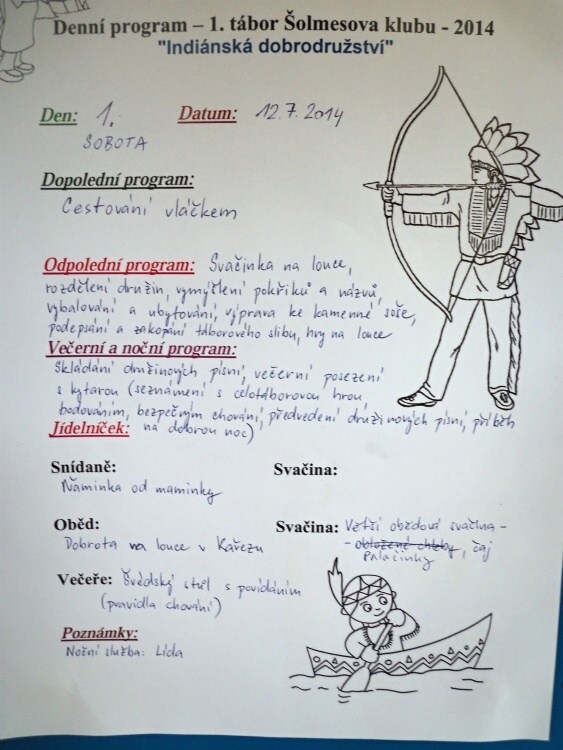 Denní program – 1. tábor Šolmesova klubu - 2014
"Indiánská dobrodružství"
Den: 1. Datum: 12.7.2014
SOBOTA
Dopolední program:
Cestování vláčkem
Odpolední program: Svačinka na louce,
rozdělení družin, vymýšlení pokřiků a názvů,
vybalování a ubytování, výprava ke kamenné soše,
podepsání a zakopání táborového slibu, hry na louce
Večerní a noční program:
Skládání družinových písní, večerní posezení
s kytarou (seznámení s celotáborovou hrou,
bodováním, bezpečným chování, předvedení družinových písní, příběh
Jídelníček: na dobrou noc)
Snídaně: Svačina:
Ňaminka od maminky
Oběd: Svačina: Větší obědová svačina -
Dobrota na louce v Kařezu - obložené chleby, čaj
Palačinky
Večeře: Švédský stůl s povídáním
(pravidla chování)
Poznámky:
Noční služba: Lída